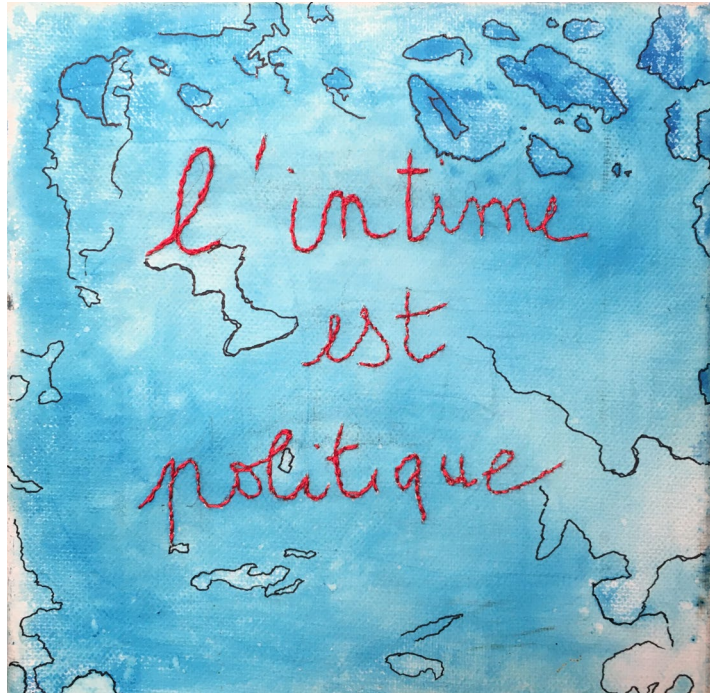 l'intime
est
politique